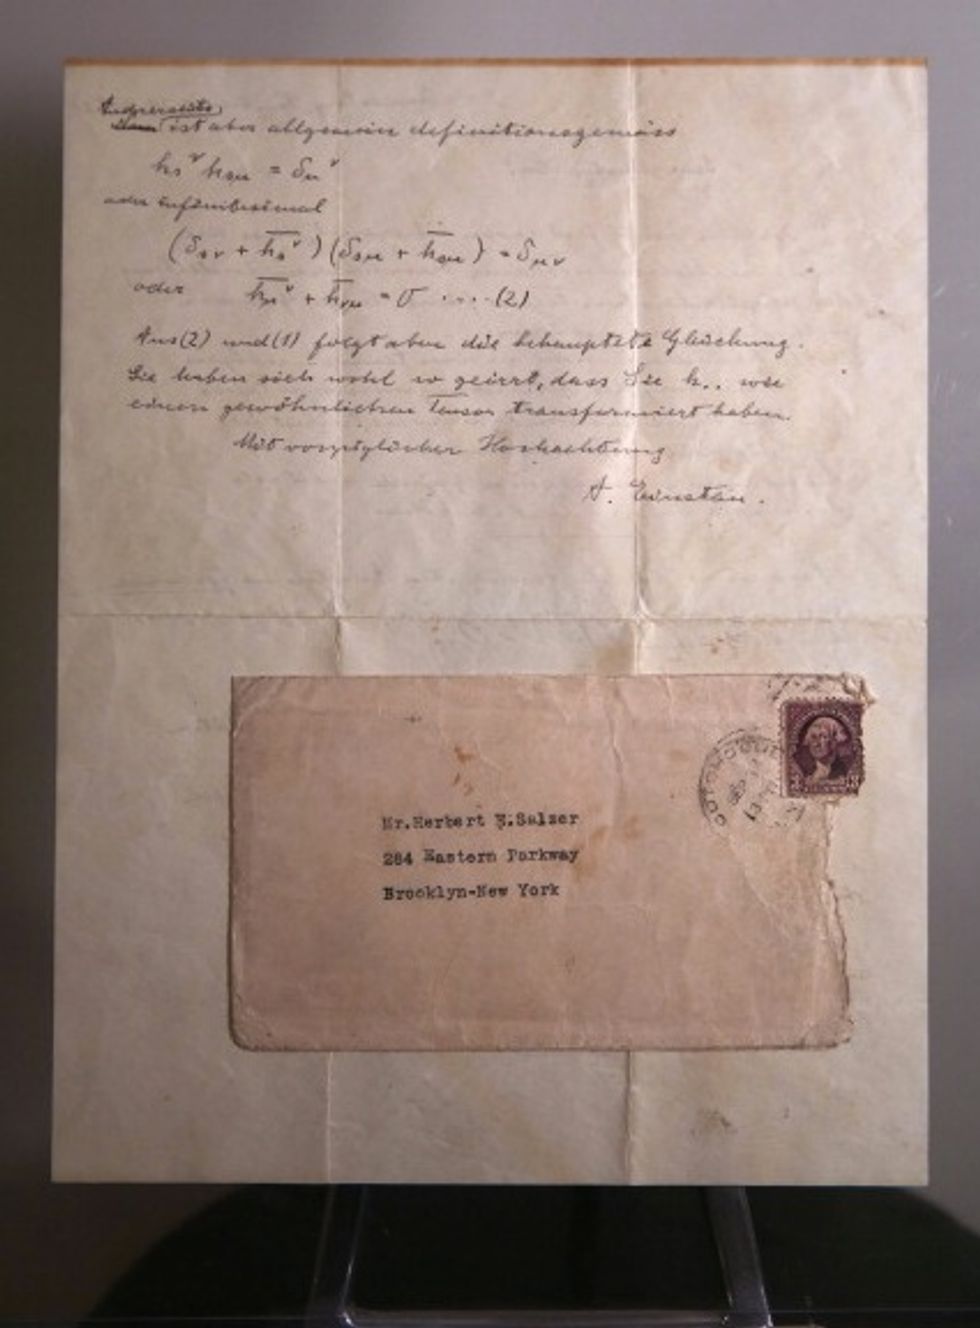 Andererseits
ist aber allgemein definitionsgemäss
h_s^ν h_sμ = δ_μ^ν
oder infinitesimal
(δ_sν + h̅_s^ν) (δ_sμ + h̅_sμ) = δ_μν
oder h̅_μ^ν + h̅_νμ = 0 ....(2)
Aus (2) und (1) folgt aber die behauptete Gleichung.
Sie haben sich wohl so geirrt, dass Sie h.. wie
einen gewöhnlichen Tensor transformiert haben.
Mit vorzüglicher Hochachtung
A. Einstein.
Mr.Herbert E.Salzer
284 Eastern Parkway
Brooklyn-New York